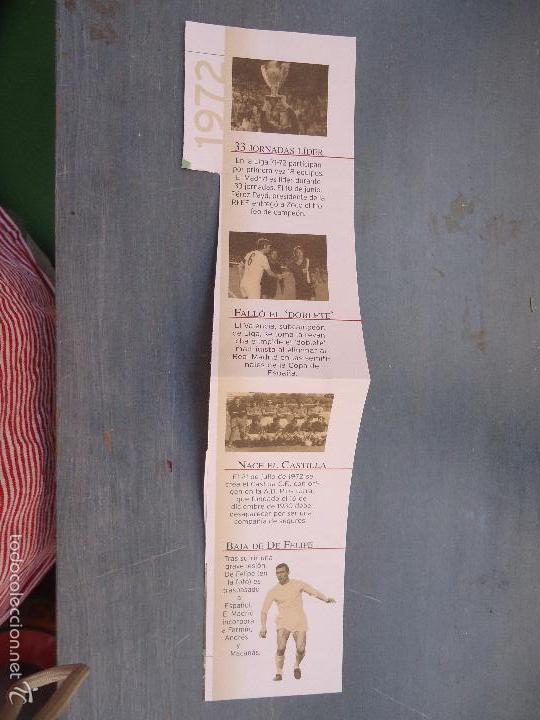 1972
33 JORNADAS LÍDER
En la Liga 71-72 participan
por primera vez 18 equipos.
El Madrid es líder durante
33 jornadas. El 10 de junio,
Pérez Payá, presidente de la
RFEF entregó a Zoco el tro-
feo de campeón.
FALLÓ EL 'DOBLETE'
El Valencia, subcampeón
de Liga, se toma la revan-
cha e impide el 'doblete'
madridista al eliminar al
Real Madrid en las semifi-
nales de la Copa de
España.
NACE EL CASTILLA
El 21 de julio de 1972 se
crea el Castilla C.F., con ori-
gen en la A.D. Plus Ultra,
que fundado el 16 de
diciembre de 1930 debe
desaparecer por ser una
compañía de seguros.
BAJA DE DE FELIPE
Tras sufrir una
grave lesión,
De Felipe (en
la foto) es
traspasado
al
Español.
El Madrid
incorpora
a Fermín,
Andrés
y
Macanás.
todocoleccion.net